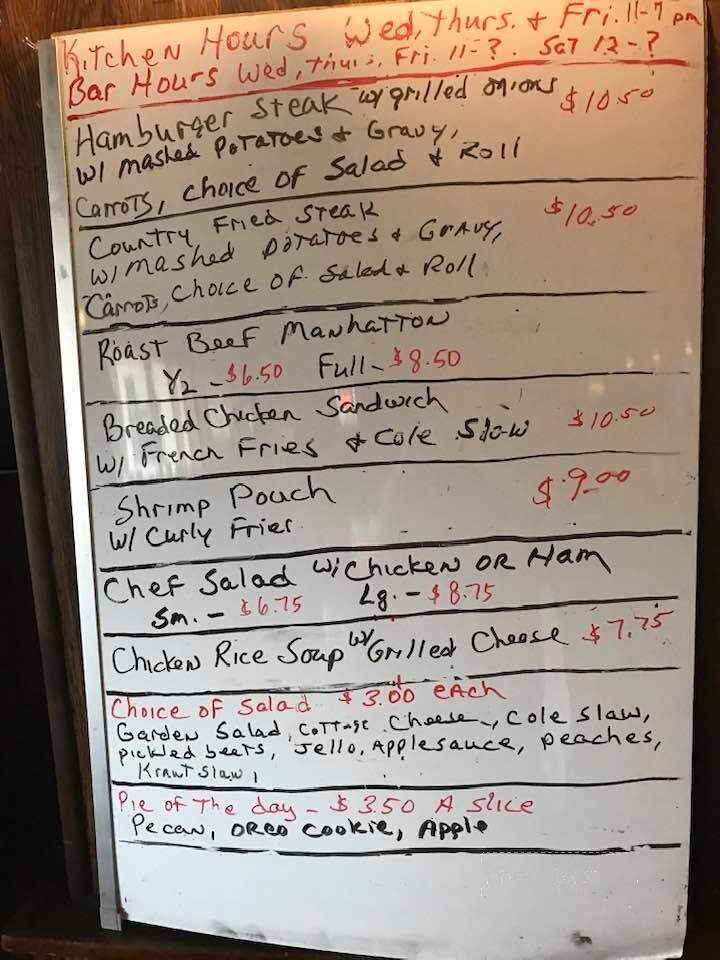 Kitchen Hours Wed, Thurs. + Fri. 11-7 pm
Bar Hours Wed, Thurs, Fri. 11-? . Sat 12-?
Hamburger Steak w/ grilled onions $10.50
w/ mashed Potatoes + Gravy,
Carrots, choice of Salad + Roll
Country Fried Steak $10.50
w/ mashed Potatoes + Gravy,
Carrots, Choice of Salad + Roll
Roast Beef Manhatton
1/2 - $6.50 Full - $8.50
Breaded Chicken Sandwich
w/ French Fries + Cole Slow $10.50
Shrimp Pouch $9.00
w/ Curly Fries
Chef Salad w/ Chicken or Ham
Sm. - $6.75 Lg. - $8.75
Chicken Rice Soup w/ Grilled Cheese $7.75
Choice of Salad $3.00 each
Garden Salad, Cottage Cheese, Cole slaw,
pickled beets, Jello, Applesauce, peaches,
Kraut slaw,
Pie of The day - $3.50 A slice
Pecan, oreo cookie, Apple